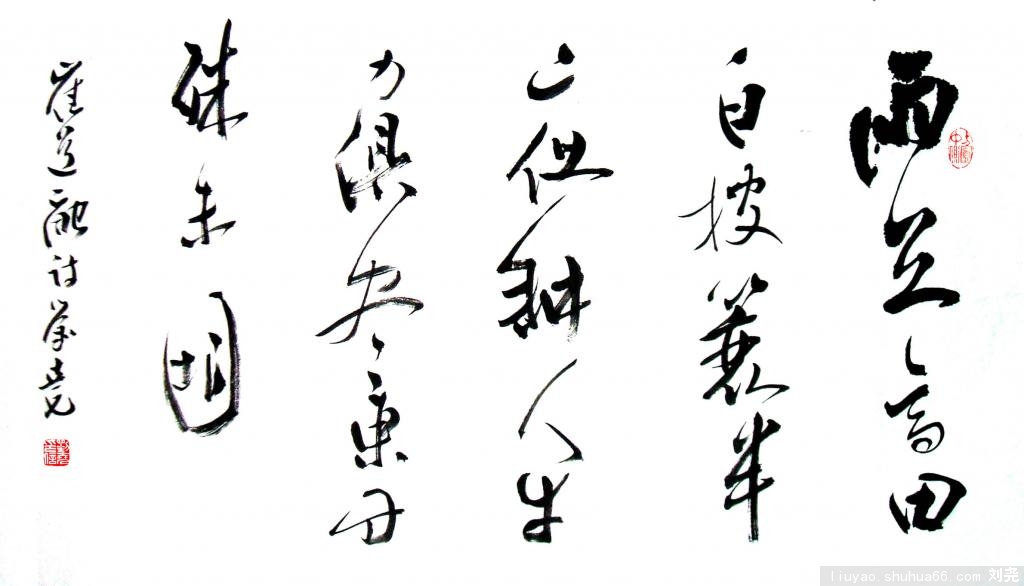 雨足高田
白披蓑半
亱耕人牛
力俱尽東方
殊未明
崔道融诗 尧
liuyao.shuhua66.com 刘尧